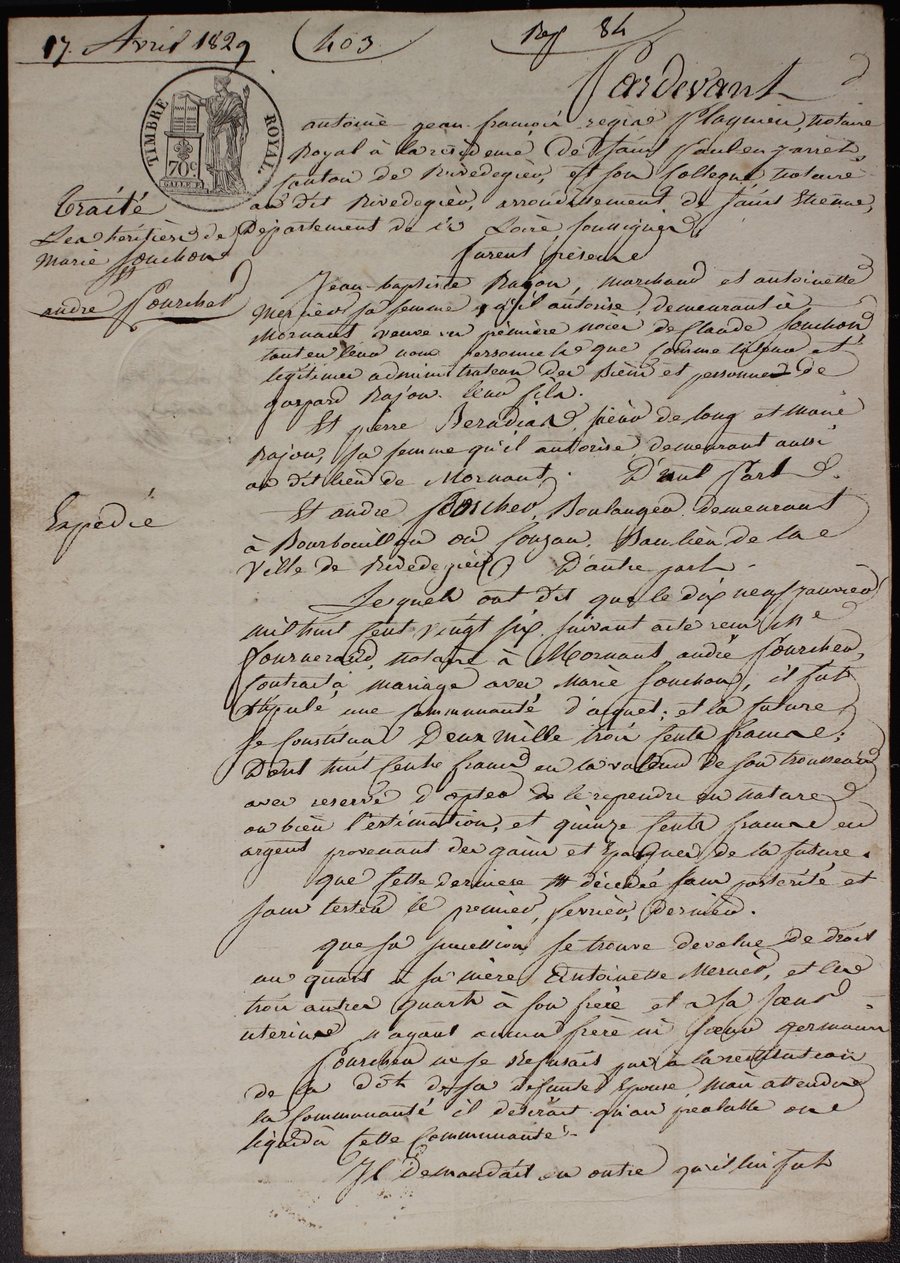 17. Avril 1829
403
Reg 84
Pardevant
TIMBRE ROYAL.
70c.
antoine jean françois regine, notaire
Royal à la residence De Saint Paul en jarret
Canton de Rivedegier, et son Collegue notaire
au dit Rivedegier, arrondissement de Saint Etienne,
Département de la Loire, soussignés
furent présens
Traité
Les heritiers de
Marie Souchon
andre Fourcher
Jean-baptiste Rajon, marchand et antoinette
Mernier sa femme qu'il autorise, demeurant à
Mornant veuve en première noces de Claude Souchon
tant en leur nom personnel que Comme tuteur et
légitimes administrateur des Biens et personnes de
gaspard Rajon leur fils.
Et pierre, de long et Marie
Rajon, sa femme qu'il autorise demeurant aussi
au dit lieu de Mornant. D'une Part
Expédié
Et andre Fourcher, Boulanger demeurant
à Bourbouillon ou Couzon, Banlieu de la
Ville de Rivedegier D'autre part.
Lesquels ont dit que le dix neuf janvier
mil huit Cent vingt six suivant acte reçu Me
notaire à Mornant andré Fourcher,
Contracta mariage avec Marie Souchon, il fut
stipulé une Communauté d'aquets; et la future
se Constitua Deux mille trois Cents francs;
Dont huit Cents francs en la valeur de son trousseau
avec reservé d'opter de le reprendre en nature
ou bien l'estimation, et quinze Cents francs en
argent provenant des gains et Epargnes de la future.
que Cette derniere est décédée sans postérité et
sans tester le premier, fevrier, dernier.
que sa succession se trouve devolue de droit
un quart a sa mère Antoinette Mernier, et les
trois autres quarts à son frère et a sa soeur
uterins n'ayant aucun frère ni soeur germain
Fourcher ne se Refusait pas à la restitution
de la dot de sa defunte Epouse, Mais attendu
la Communauté il désirait qu'au prealable on
liquida Cette Communauté.
Il demandait en outre qu'il lui fut